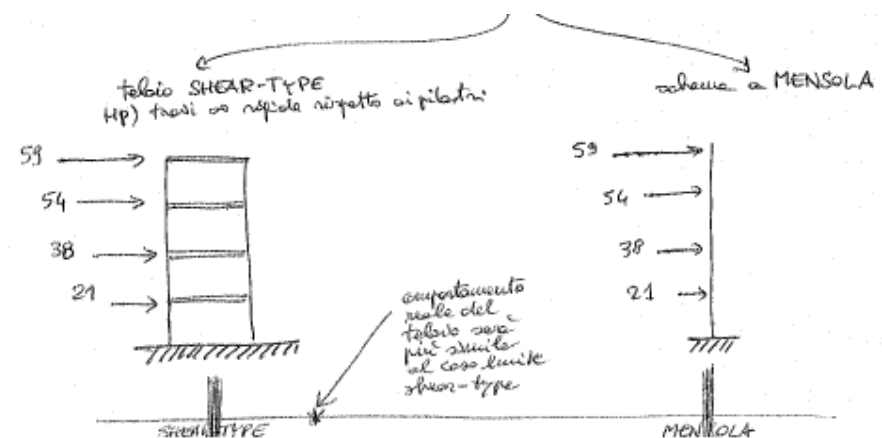 telaio SHEAR-TYPE
Hp) travi ∞ rigide rispetto ai pilastri
schema a MENSOLA
59
54
38
21
59
54
38
21
comportamento
reale del
telaio sarà
più simile
al caso limite
shear-type
SHEAR TYPE
MENSOLA